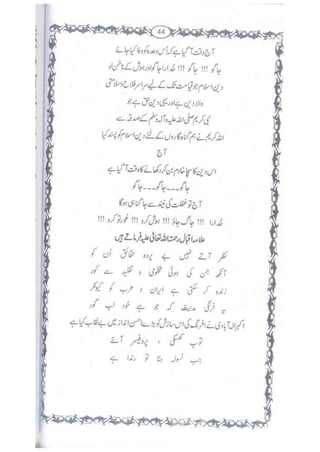 44
آج وقت آگیا ہے کہ اس وعدہ کو وفا کیا جائے
جاگو !!! جاگو !!! خدارا جاگو اور ہوش کے ناخن لو
دین اسلام جو قیامت تک کے لیے سراسر فلاح و سلامتی
والا دین ہے اور یہی دین حق ہے جو
نبی کریم صلی اللہ علیہ وآلہ وسلم کے صدقہ سے
اللہ کریم نے ہم گناہ گاروں کے لئے دین اسلام کو پسند کیا
آج
اس دین کا سچا خادم بن کر دکھانے کا وقت آگیا ہے
جاگو۔۔۔جاگو۔۔۔جاگو
آج تو غفلت کی نیند سے جاگنا ہی ہوگا
خدارا !!! جاگ جاؤ !!! ہوش کرو !!! غور تو کرو
علامہ اقبال رحمۃ اللہ تعالیٰ علیہ فرماتے ہیں
نظر آتے نہیں بے پردہ حقائق اُن کو
آنکھ جن کی ہوئی محکومی و تقلید سے کور
زندہ کر سکتی ہے ایران و عرب کو کیونکر
یہ فرنگی مدنیت کہ جو ہے خود لب گور
اکبر الہ آبادی نے افرنگ کی اس سازش کو بڑے احسن انداز میں بے نقاب کیا ہے
توپ کھسکی ، پروفیسر آئے
جب بسولہ ہٹا تو رندا ہے